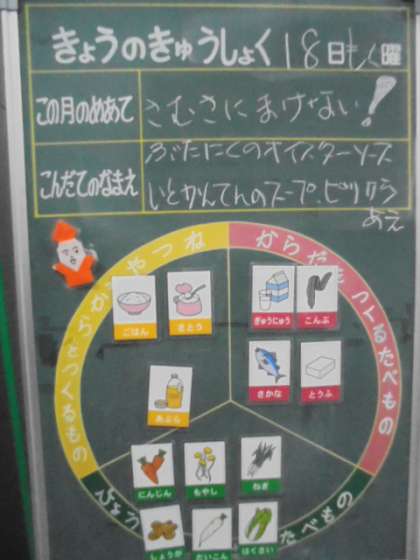 きょうのきゅうしょく 18日もく曜
この月のめあて さむさにまけない!
こんだてのなまえ ぶたにくのオイスターソース
いとかんてんのスープ、ピリカラ
あえ
からだをつくるたべもの
ちからやねつ
となるもの
ごはん さとう
ぎゅうにゅう こんぶ
さかな とうふ
あぶら
にんじん もやし ねぎ
しょうが だいこん はくさい
たべもの